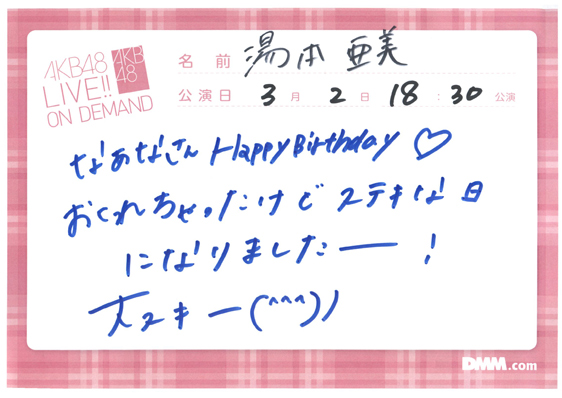 AKB48
AKB
48
LIVE!!
ON DEMAND
名前 湯本 亜美
公演日 3月 2日 18:30 公演
なぁなさん Happy Birthday♡
おくれちゃったけど ステキな日
になりましたー!
大スキー(^^^))
DMM.com